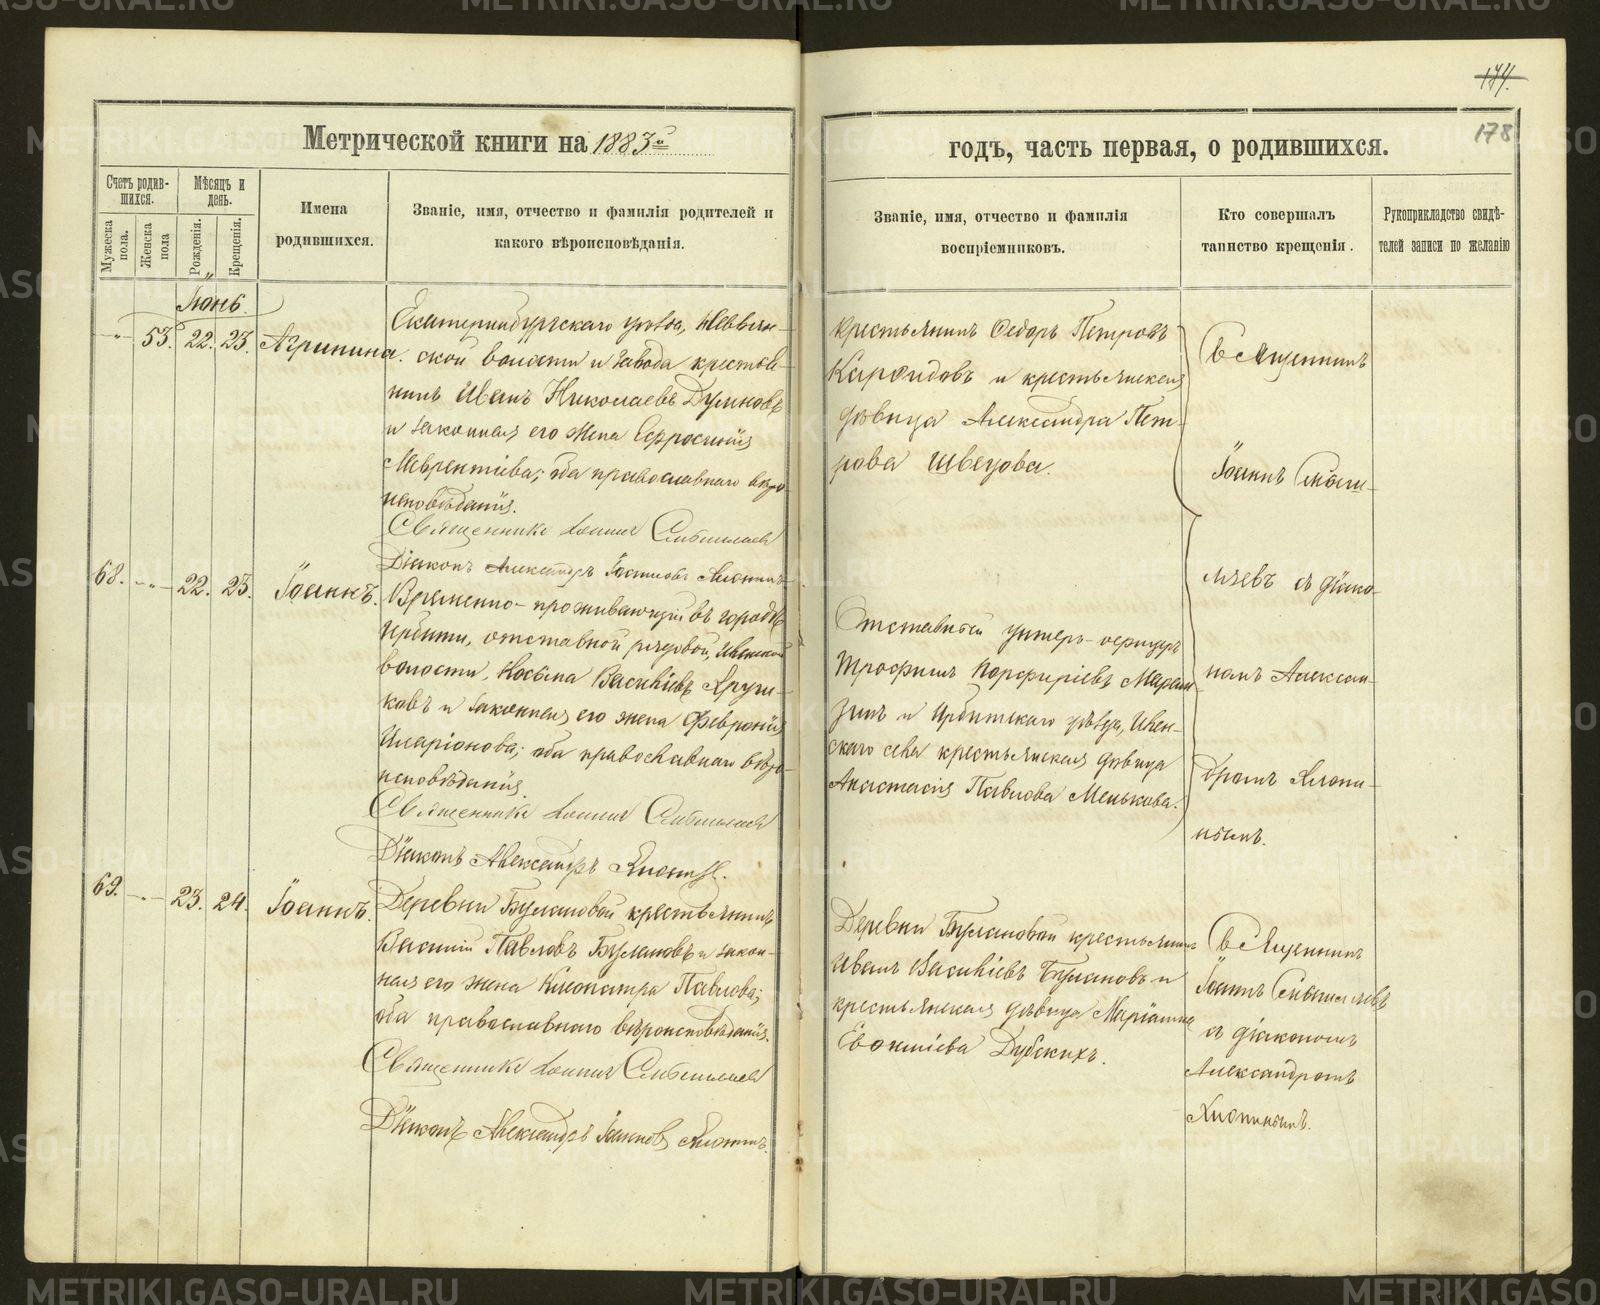 174.
178
Метрической книги на 1883й
годъ, часть первая, о родившихся.
Счетъ родив-
шихся.
Мѣсяцъ и
день.
Мужеска
пола.
Женска
пола
Рожденія.
Крещенія.
Имена
родившихся.
Званіе, имя, отчество и фамилія родителей и
какого вѣроисповѣданія.
Званіе, имя, отчество и фамилія
воспріемниковъ.
Кто совершалъ
таинство крещенія.
Рукоприкладство свидѣ-
телей записи по желанію
Іюнь.
53. 22. 23. Агрипина.
Екатеринбургскаго уѣзда, Невьян-
ской волости и завода крестья-
нинъ Иванъ Николаевъ
и законная его жена Ефросинія
Лаврентіева; оба православнаго вѣро-
исповѣданія.
Священникъ Іоаннъ
Діаконъ Александръ Іоанновъ
крестьянинъ Ѳедоръ Петровъ
и крестьянская
дѣвица Александра Пет-
рова Швецова.
Священникъ
Іоаннъ
съ діако-
номъ Алексан-
дромъ
68. 22. 23. Іоаннъ.
Временно-проживающій въ городѣ
Ирбити, отставной рядовой,
волости, Василіевъ
и законная его жена Февронія
Иларіонова; оба православнаго вѣро-
исповѣданія.
Священникъ Іоаннъ
Діаконъ Александръ
Отставный унтеръ-офицеръ
Трофимъ Порфиріевъ
зинъ и Ирбитскаго уѣзда,
скаго села крестьянская дѣвица
Анастасія Павлова Менькова.
69. 23. 24. Іоаннъ.
Деревни Булановой крестьянинъ
Василій Павловъ Булановъ и закон-
ная его жена Клеопатра Павлова;
оба православнаго вѣроисповѣданія.
Священникъ Іоаннъ
Діаконъ Александръ Іоанновъ
Деревни Булановой крестьянинъ
Иванъ Василіевъ Булановъ и
крестьянская дѣвица
Дубскихъ.
Священникъ
Іоаннъ
съ діакономъ
Александромъ
METRIKI.GASO-URAL.RU